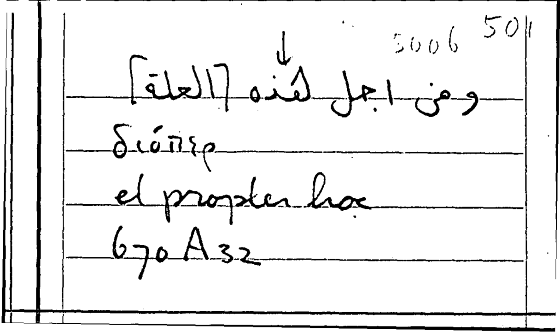 5006 501
↓
ومن اجل هذه [العلة]
διόπερ
et propter hoc
670 A 32